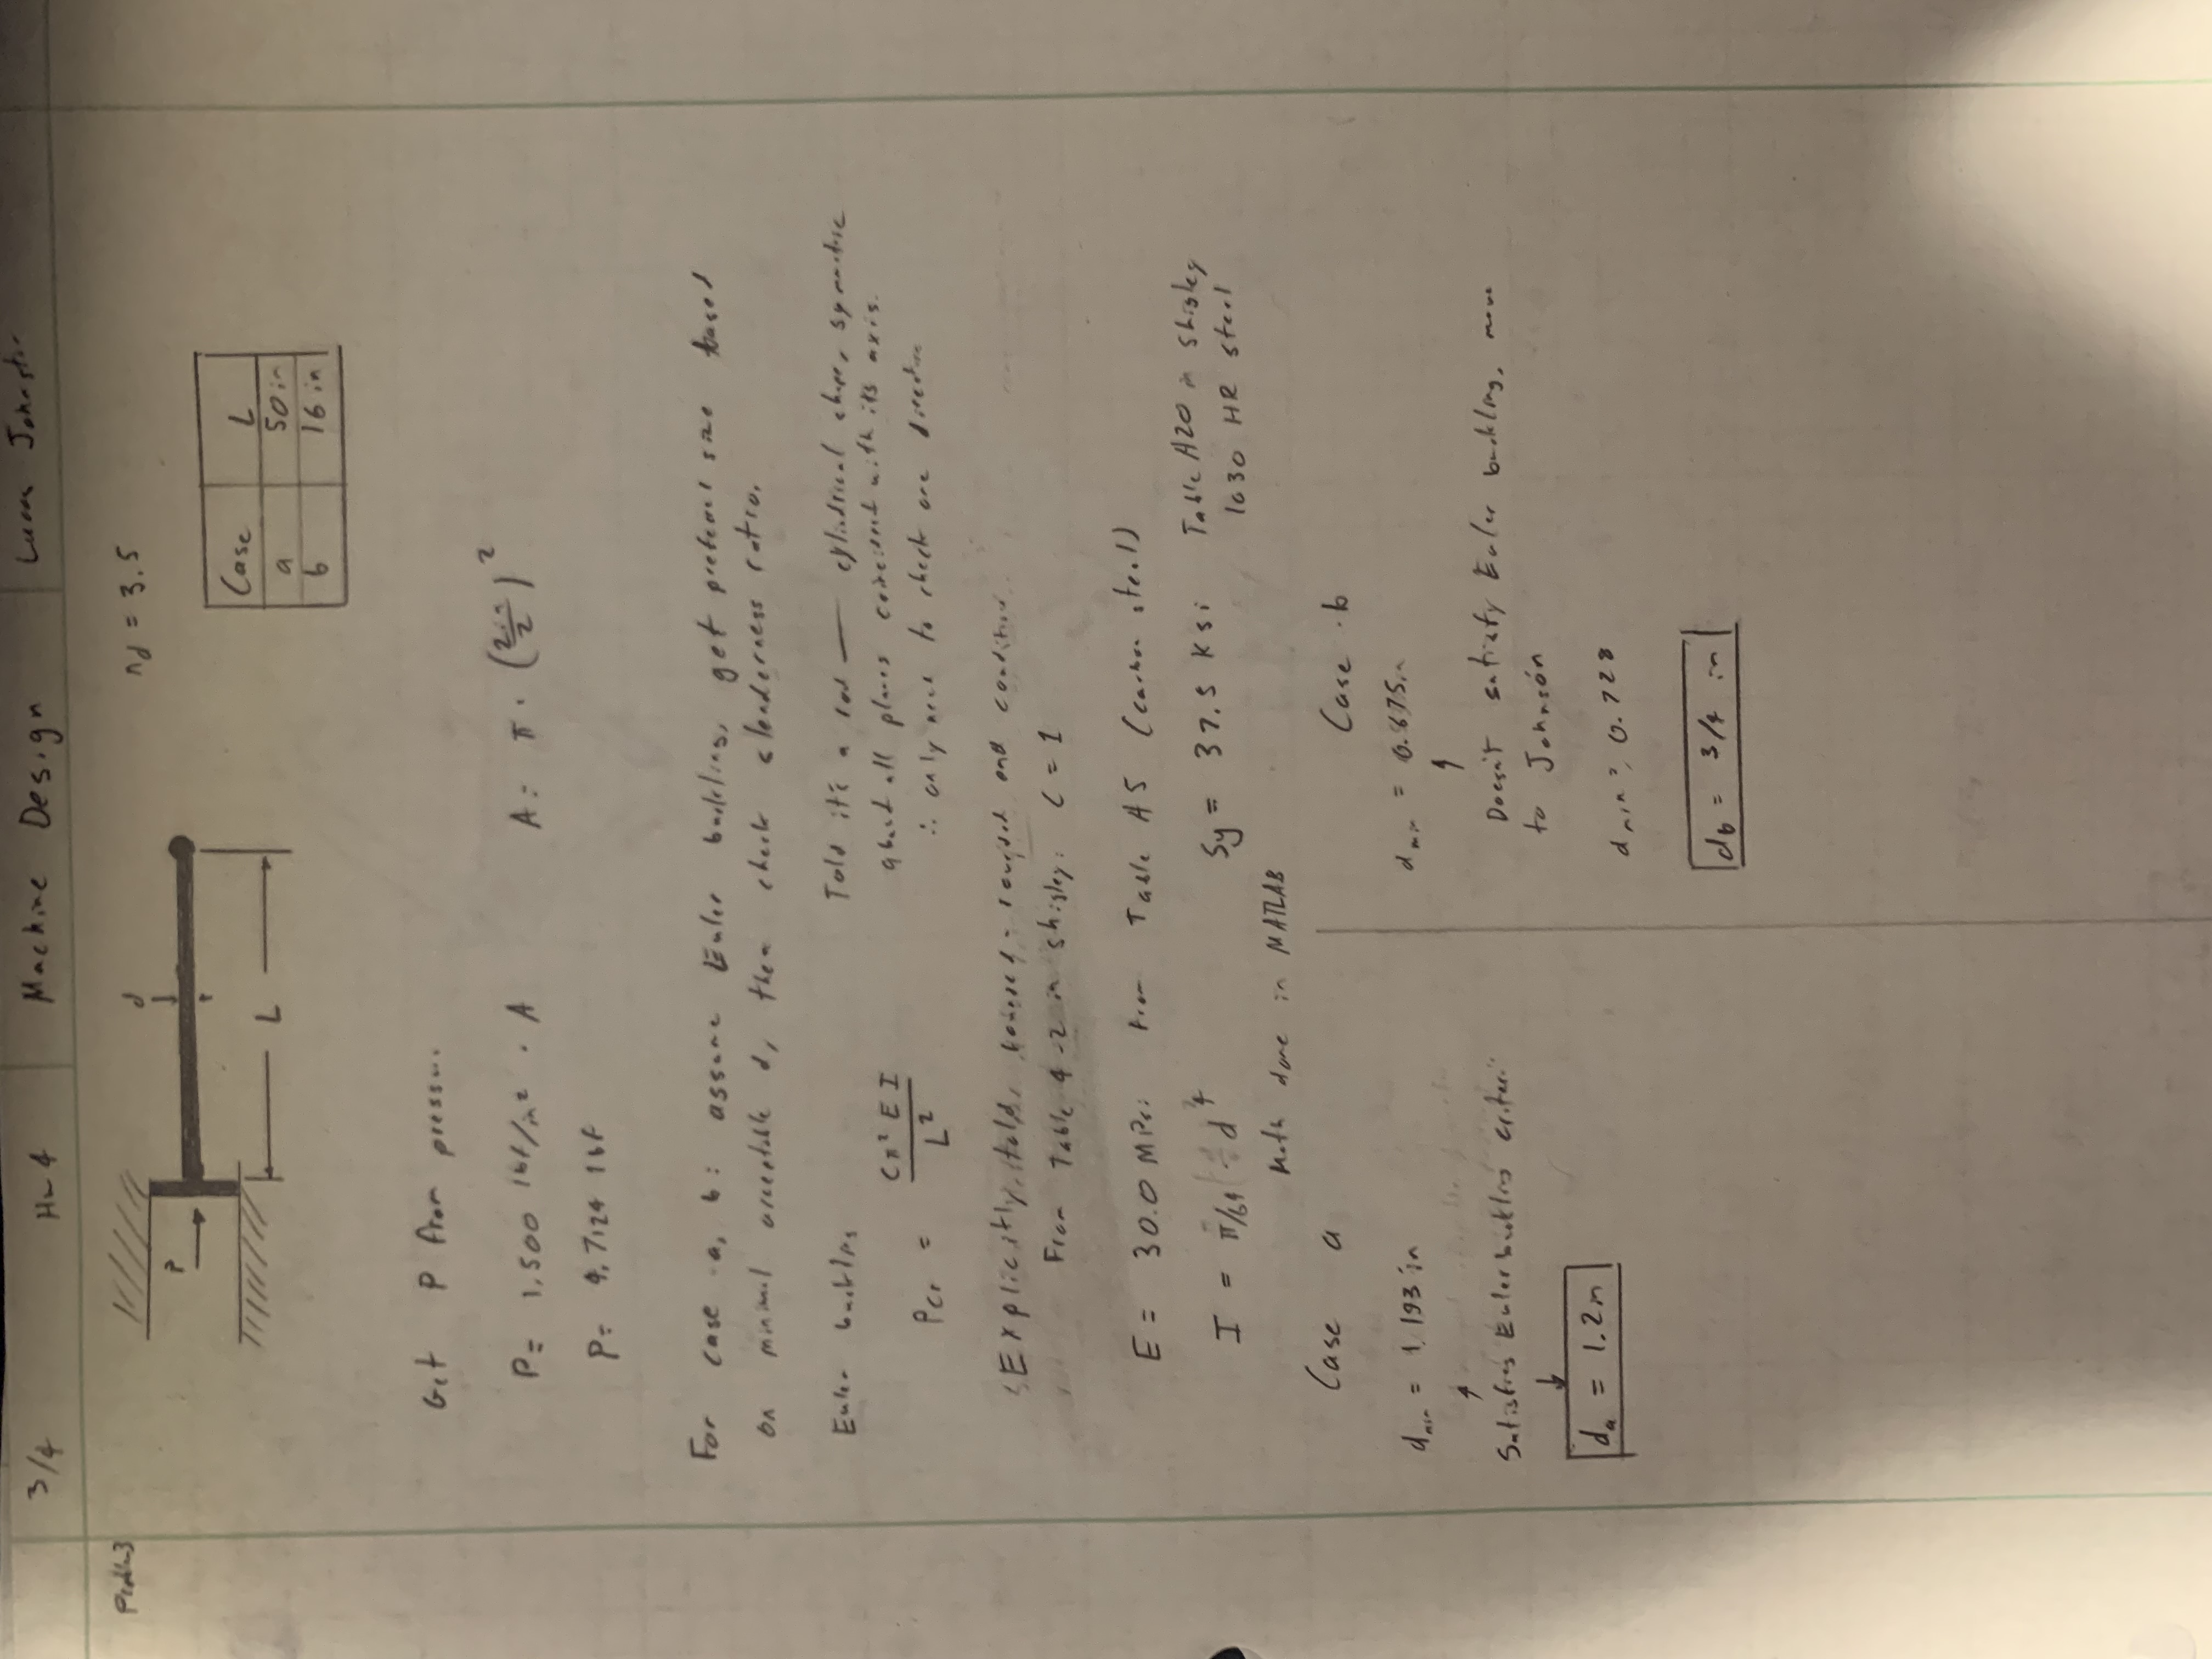 3/4 Hw 4 Machine Design Lucas
Problem 3
n_d = 3.5
d
P
L
Case L
a 50 in
b 16 in
Get P from
P = 1,500 lbf/in² · A
A = π · (2in/2)²
P = 4.7124 lbf
For case a, b : assume Euler buckling, get preferred size based
on minimal acceptable d, then check slenderness ratio.
Euler buckling
Told it's a rod — cylindrical shape, symmetric
about all planes coincident with its axis.
∴ only need to check one direction
Pcr = Cπ² E I / L²
Explicitly told, rounded - rounded end condition
From Table 4-2 in Shigley: C = 1
E = 30.0 MPsi from Table A5 (carbon steel)
I = π/64 d⁴
Sy = 37.5 Ksi Table A20 in Shigley
1030 HR steel
Math done in MATLAB
Case a
d_min = 1.193 in
Satisfies Euler buckling
d_a = 1.2in
Case b
d_min = 0.675in
Doesn't satisfy Euler buckling, move
to Johnson
d_min = 0.728
d_b = 3/4 in